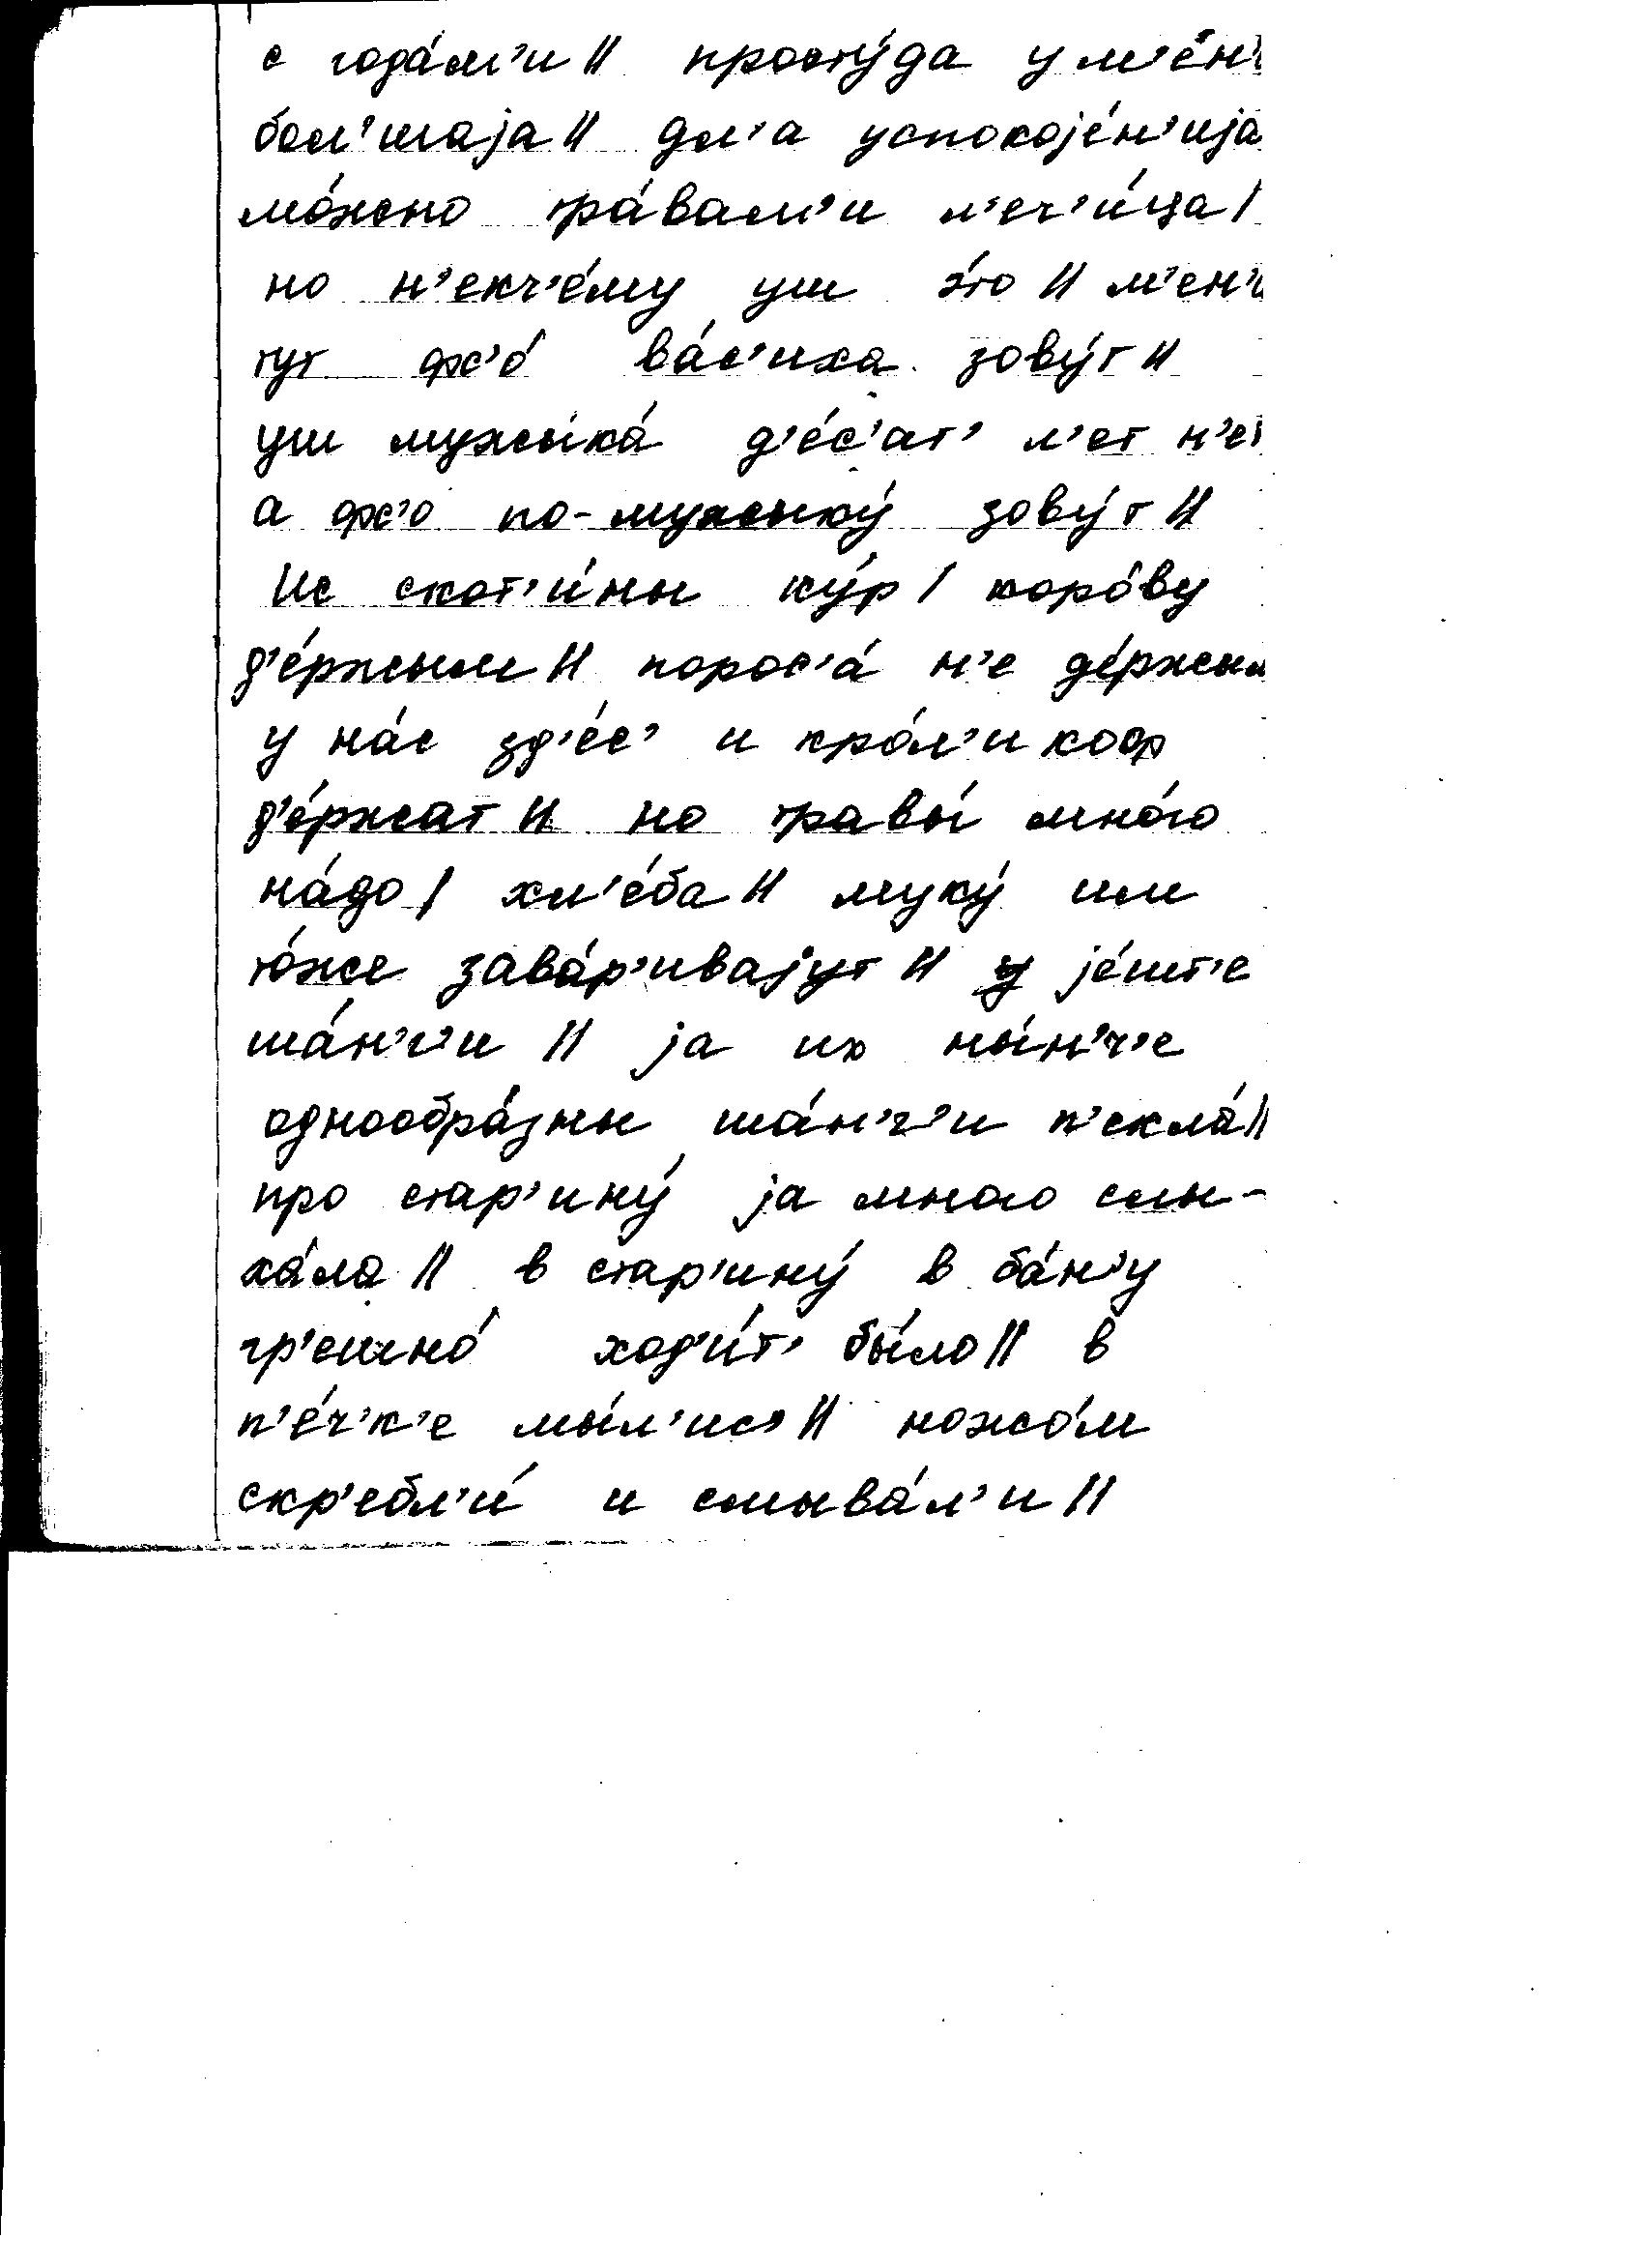 с года́м'и || просту́да у м'е́н'
бол'шаjа || дл'а успокоjе́н'иjа
мо́жно тра́вам'и л'еч'и́ца |
но н'екч'е́му уш э́то || м'ен'
тут фс'о́ ва́с'иха зову́т ||
уш мужыка́ д'е́с'ат' л'ет н'е
а фс'о по-мужыку́ зову́т ||
Ис скот'и́ны ку́р | коро́ву
д'е́ржым || порос'а́ н'е де́ржым
у на́с зд'е́с' и кро́л'икоф
д'е́ржат || но травы́ мно́го
на́до | хл'е́ба || муку́ им
то́же зава́р'иваjут || jе́шт'е
ша́н'г'и || jа их ны́н'ч'е
однообра́зны ша́н'г'и п'екла́ ||
про стар'ину́ jа много слы-
ха́ла || в стар'ину́ в ба́н'у
гр'ешно́ ход'и́т' бы́ло || в
п'е́ч'к'е мы́л'ис' || ножо́м
скр'ебл'и́ и смыва́л'и ||